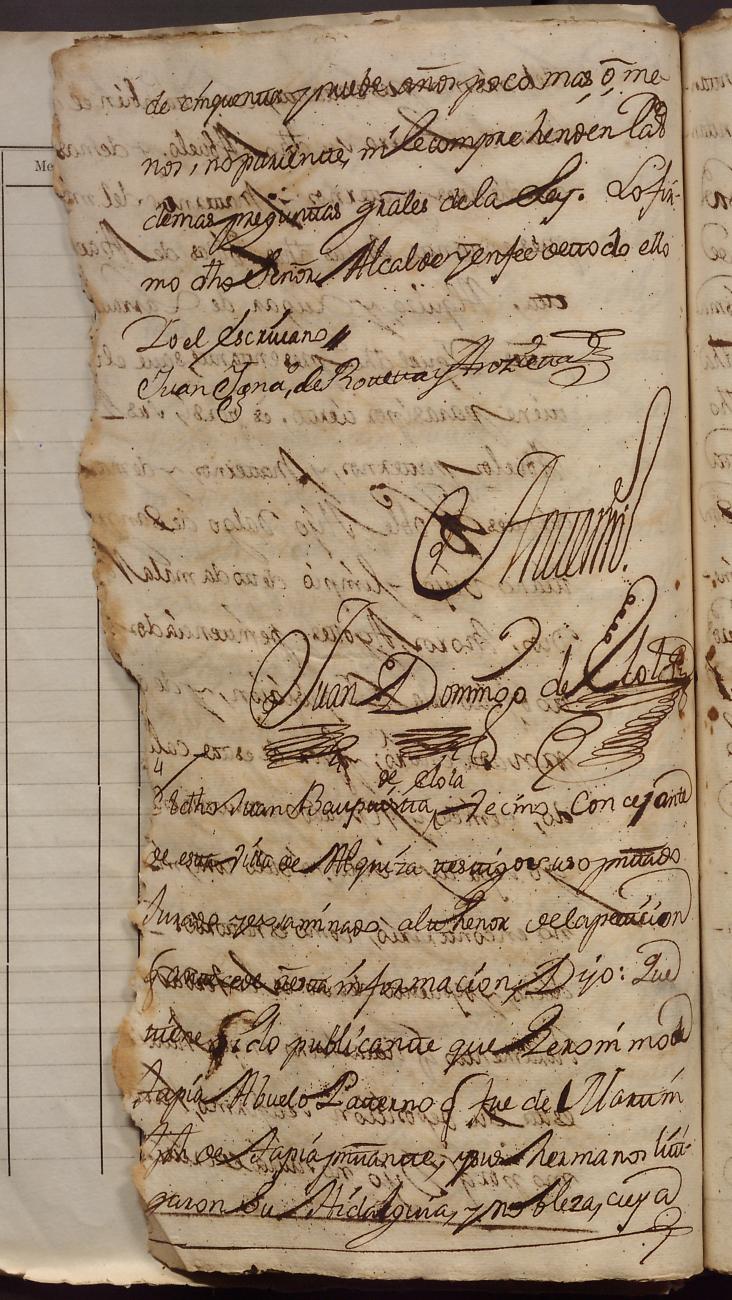 de cinquenta y nuebe años poco mas ô me
nos, no pariente, ni le comprehenden las
demas preguntas grãles de la Ley. Lo fir-
mo dho Señor Alcalde y en feè de todo ello
Yo el Escriuano
Juan Igna.º de
Ante mi
Juan Domingo de
de Elola
dho Juan Bauptista, Vecino Concejante
de esta Villa de Alquiza testigo
Jurado y examinado al thenor de la peticion
informacion, Dijo: Que
tiene publicamte que Geronimo de
Tapia Abuelo Paterno q fue de Martin
de Tapia y sus hermanos liti-
garon Su Hidalguia, y nobleza, cuya
Me